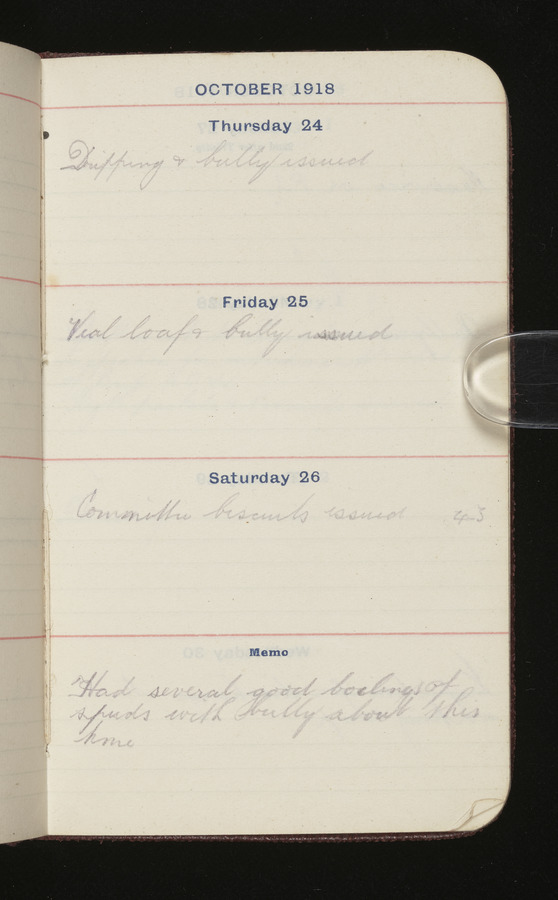 OCTOBER 1918
Thursday 24
Dripping & bully issued
Friday 25
Veal loaf & bully issued
Saturday 26
Committee biscuits issued 43
Memo
Had several good boilings of
spuds with bully about this
time